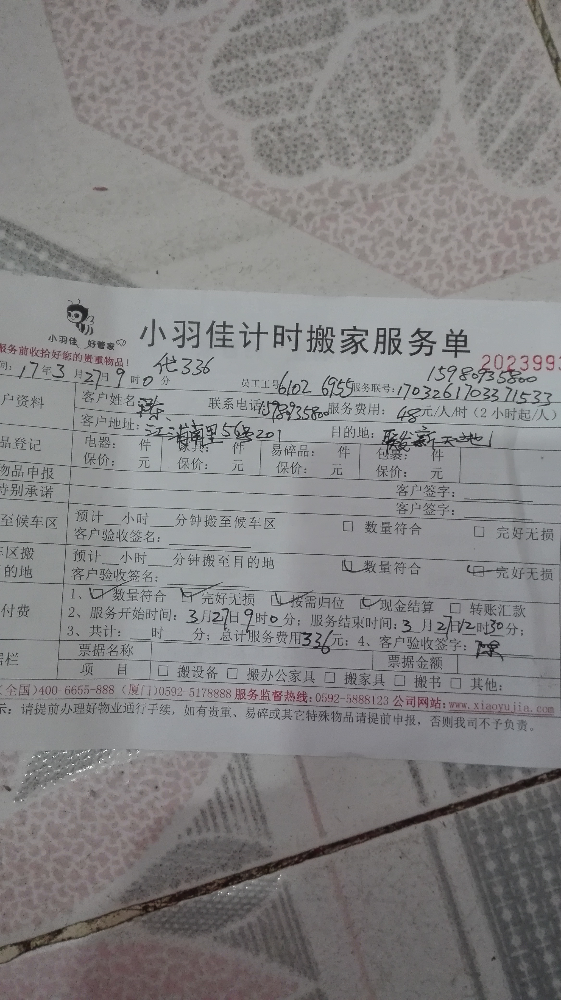 小羽佳 好管家
小羽佳计时搬家服务单
2023993
服务前收拾好您的贵重物品!
代336
15980935800
间: 17年3月27日9时0分 员工工号 6102 6955 服务联号: 1703261703371533
户资料 客户姓名: 陈 联系电话 15980935800 服务费用: 48元/人/时(2小时起/人)
客户地址: 江 里56 201 目的地: 新天地1
品登记 电器: 件 家具: 件 易碎品: 件 包裹: 件
保价: 元 保价: 元 保价: 元 保价: 元
物品申报
特别承诺 客户签字:
客户签字:
至候车区 预计__小时__分钟搬至候车区 □ 数量符合 □ 完好无损
客户验收签名:
车区搬 预计__小时__分钟搬至目的地 ☑ 数量符合 ☑ 完好无损
的地 客户验收签名:
1、☑ 数量符合 ☑ 完好无损 ☑ 按需归位 ☑ 现金结算 □ 转账汇款
付费 2、服务开始时间: 3月27日9时0分; 服务结束时间: 3月27日12时30分;
3、共计: __时__分; 总计服务费用336元; 4、客户验收签字: 陈
据栏 票据名称 票据金额
项 目 □ 搬设备 □ 搬办公家具 □ 搬家具 □ 搬书 □ 其他:
(全国)400 6655-888 (厦门)0592-5178888 服务监督热线:0592-5888123 公司网站:www.xiaoyujia.com
示: 请提前办理好物业通行手续, 如有贵重、易碎或其它特殊物品请提前申报, 否则我司不予负责。